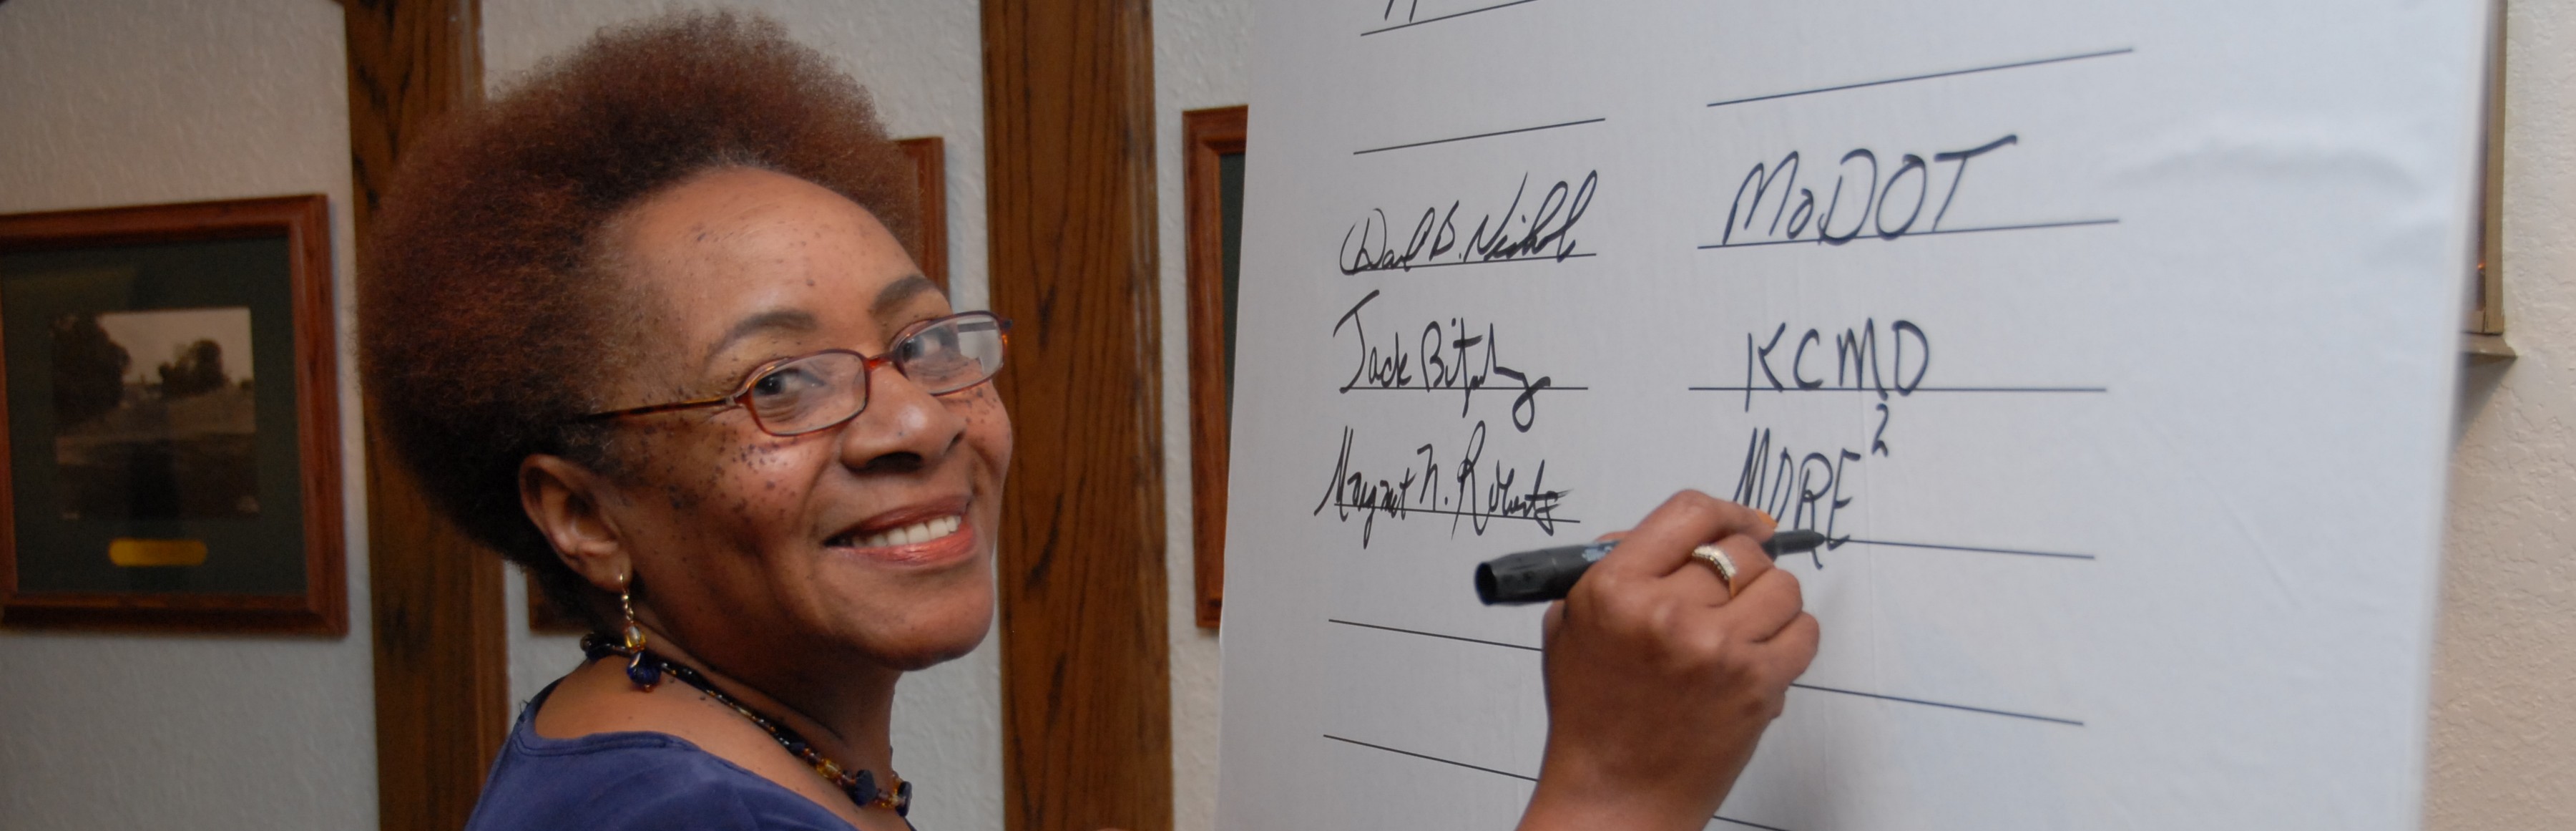 David B. Nichols MoDOT
Jack KCMO
Margaret N. Roberts MORE²